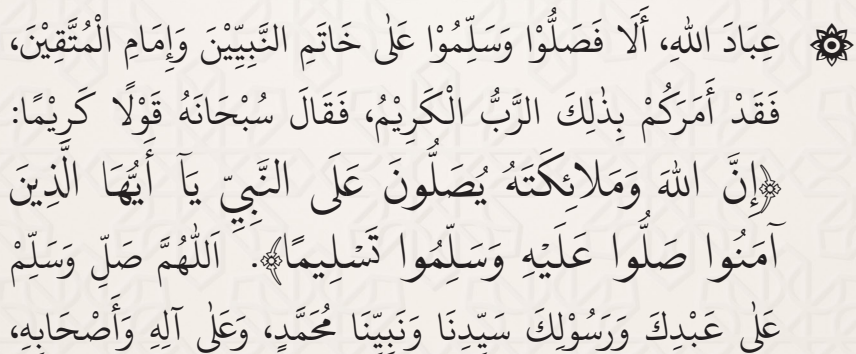 عِبَادَ اللهِ، أَلَا فَصَلُّوْا وَسَلِّمُوْا عَلٰى خَاتَمِ النَّبِيِّيْنَ وَإِمَامِ الْمُتَّقِيْنَ،
فَقَدْ أَمَرَكُمْ بِذٰلِكَ الرَّبُّ الْكَرِيْمُ، فَقَالَ سُبْحَانَهُ قَوْلًا كَرِيْمًا:
﴿إِنَّ اللهَ وَمَلائِكَتَهُ يُصَلُّونَ عَلَى النَّبِيِّ يَآ أَيُّهَا الَّذِينَ
آمَنُوا صَلُّوا عَلَيْهِ وَسَلِّمُوا تَسْلِيمًا﴾. اَللّٰهُمَّ صَلِّ وَسَلِّمْ
عَلٰى عَبْدِكَ وَرَسُوْلِكَ سَيِّدِنَا وَنَبِيِّنَا مُحَمَّدٍ، وَعَلٰى آلِهِ وَأَصْحَابِهِ،